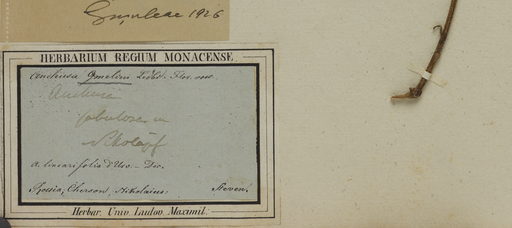 Gușuleac 1926
HERBARIUM REGIUM MONACENSE
Anchusa Gmelini Ledeb. Flor. ross.
Anchusa
in
A. linarifolia
Rossia, Cherson, Nikolaiew. Steven.
Herbar. Univ. Ludov. Maximil.